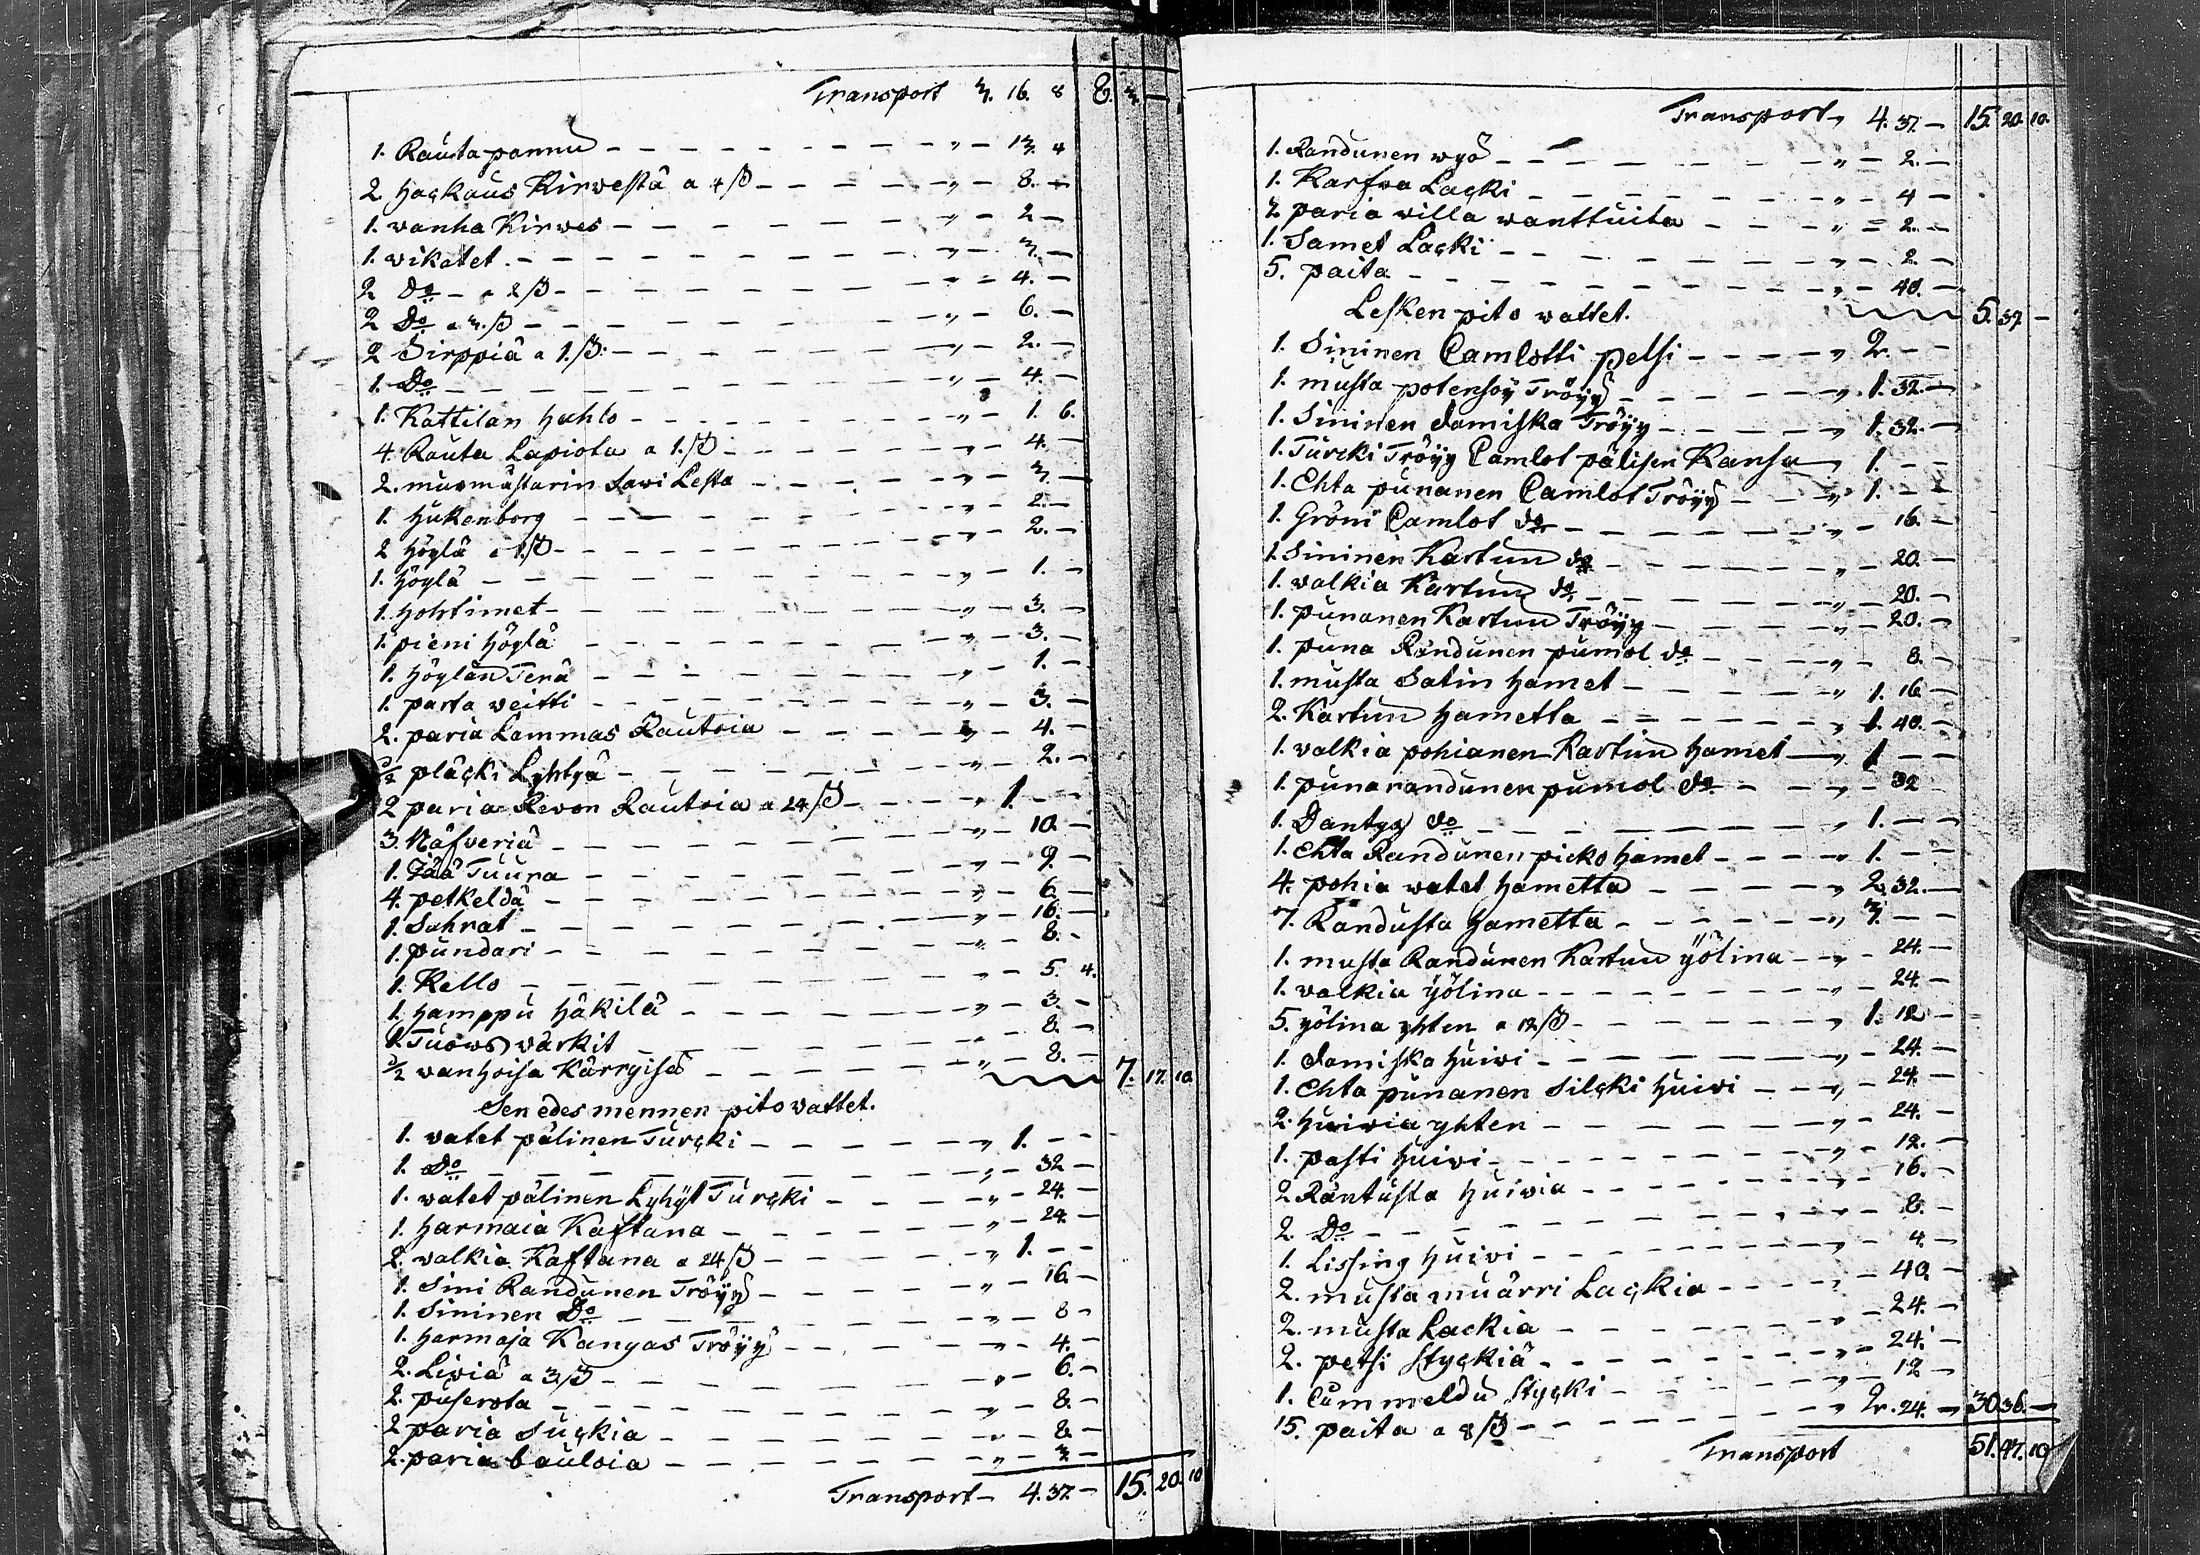 Transport 3. 16. 8 8. 3. —
1. Rauta pannu — „ — 13. 4
2. Hackaus Kirvestä a 4 ß — „ — 8. —
1. vanha Kirves — „ — 2 —
1. vikatet. — „ — 3. —
2 Do — a 2 ß — „ — 4. —
2 Do a 3. ß — „ — 6. —
2 Sirppiä a 1. ß: — „ — 2. —
1. Do — „ — 4. —
1. Kattilan Hahlo — „ — 1. 6.
4. Rauta Lapiota a 1. ß — „ — 4. —
2. murmästarin Savi Lesta — „ — 3. —
1. Hukenborg — 2. —
2 Höylä a 1. ß — „ — 2. —
1. Höylä — „ — 1. —
1. Hohtimet — „ — 3. —
1. pieni Höylä — „ — 3. —
1. Höylän Terä — „ — 1. —
1. parta veitti — „ — 3. —
2. paria Lammas Rautoia — „ — 4. —
1/2 pläcki Lyhtyä — „ — 2. —
2 paria Revon Rautoia a 24 ß — „ 1. — —
3. Näfveriä — „ — 10. —
1. Jää Tuura — „ — 9. —
4. petkeldä — „ — 6. —
1. Sahrat — „ — 16. —
1. pundari — „ — 8. —
1. Kello — „ — 5. 4.
1. Hamppu Häkilä — „ — 3. —
1. Tuows värkit — 8. —
1/2 vanhoisa Kärryisä — „ — 8. — 7. 17. 10
Sen edes mennen pito vattet.
1. vatet pälinen Turcki — „ 1. — —
1. Do — „ — 32 —
1. vatet pälinen Lyhyt Turcki — „ — 24. —
1. Harmaia Kaftana — „ — 24. —
2. valkia Kaftana a 24 ß — „ 1. — —
1. Sini Randunen Tröyy — „ — 16. —
1. Sininen Do — „ — 8 —
1. Harmaja Kangas Tröyy — „ — 4. —
2. Liviä a 3 ß — „ — 6. —
2. puserota — „ — 8. —
2 paria Suckia — „ — 8. —
2. paria bauloia — „ — 3 —
Transport — 4. 37. — 15. 20. 10
Transport „ 4. 37. — 15. 20. 10.
1. Randunen vyö — „ — 2. —
1. Karfva Lacki — „ — 4 —
2 paria villa vanttuita — „ — 2. —
1. Samet Lacki — „ — 2 —
5. paita — „ — 40. —
Lesken pito vattet. 5. 37 —
1. Sininen Camlotti peltsi — „ 2. — —
1. musta potensoy Tröyy — „ 1. 32. —
1. Sininen damiska Tröyy — „ 1. 32. —
1. Turcki Tröyy Camlot pälisen Kansa „ 1. — —
1. Ehta punanen Camlot Tröyy — „ 1. — —
1. Gröni Camlot do — „ — 16. —
1. Sininen Kartun do — „ — 20. —
1. valkia Kartun do — „ — 20. —
1. punanen Kartun Tröyy — „ — 20. —
1. puna Randunen pumol do — „ — 8. —
1. musta Satin Hamet — „ 1. 16 —
2. Kartun Hametta — „ 1. 40. —
1. valkia pohianen Kartun Hamet — „ 1 — —
1. puna randunen pumol do — „ — 32
1. Dantyg do — „ 1. — —
1. Ehta Randunen picko Hamet — „ 1. — —
4. pohia vatet Hametta — „ 2. 32. —
7. Randusta Hametta — „ 3. — —
1. musta Randunen Kartun yölina — „ — 24. —
1. valkia yölina — „ — 24. —
5. yölina yhten a 12 ß — „ 1. 12 —
1. damiska Huivi — „ — 24. —
1. Ehta punanen Silcki Huivi — „ — 24. —
2. Huivia yhten — „ — 24. —
1. pasti Huivi — „ — 12. —
2 Räntusta Huivia — 16. —
2 Do — 8. —
1. Lissing Huivi — 4. —
2. musta muärri Lackia — 40. —
2. musta Lackia — 24. —
2. peltsi Styckiä — „ — 24. —
1. Cummeldu Stycki — 12
15. paita a 8 ß — „ 2. 24. — 30 36. —
Transport 51. 47. 10